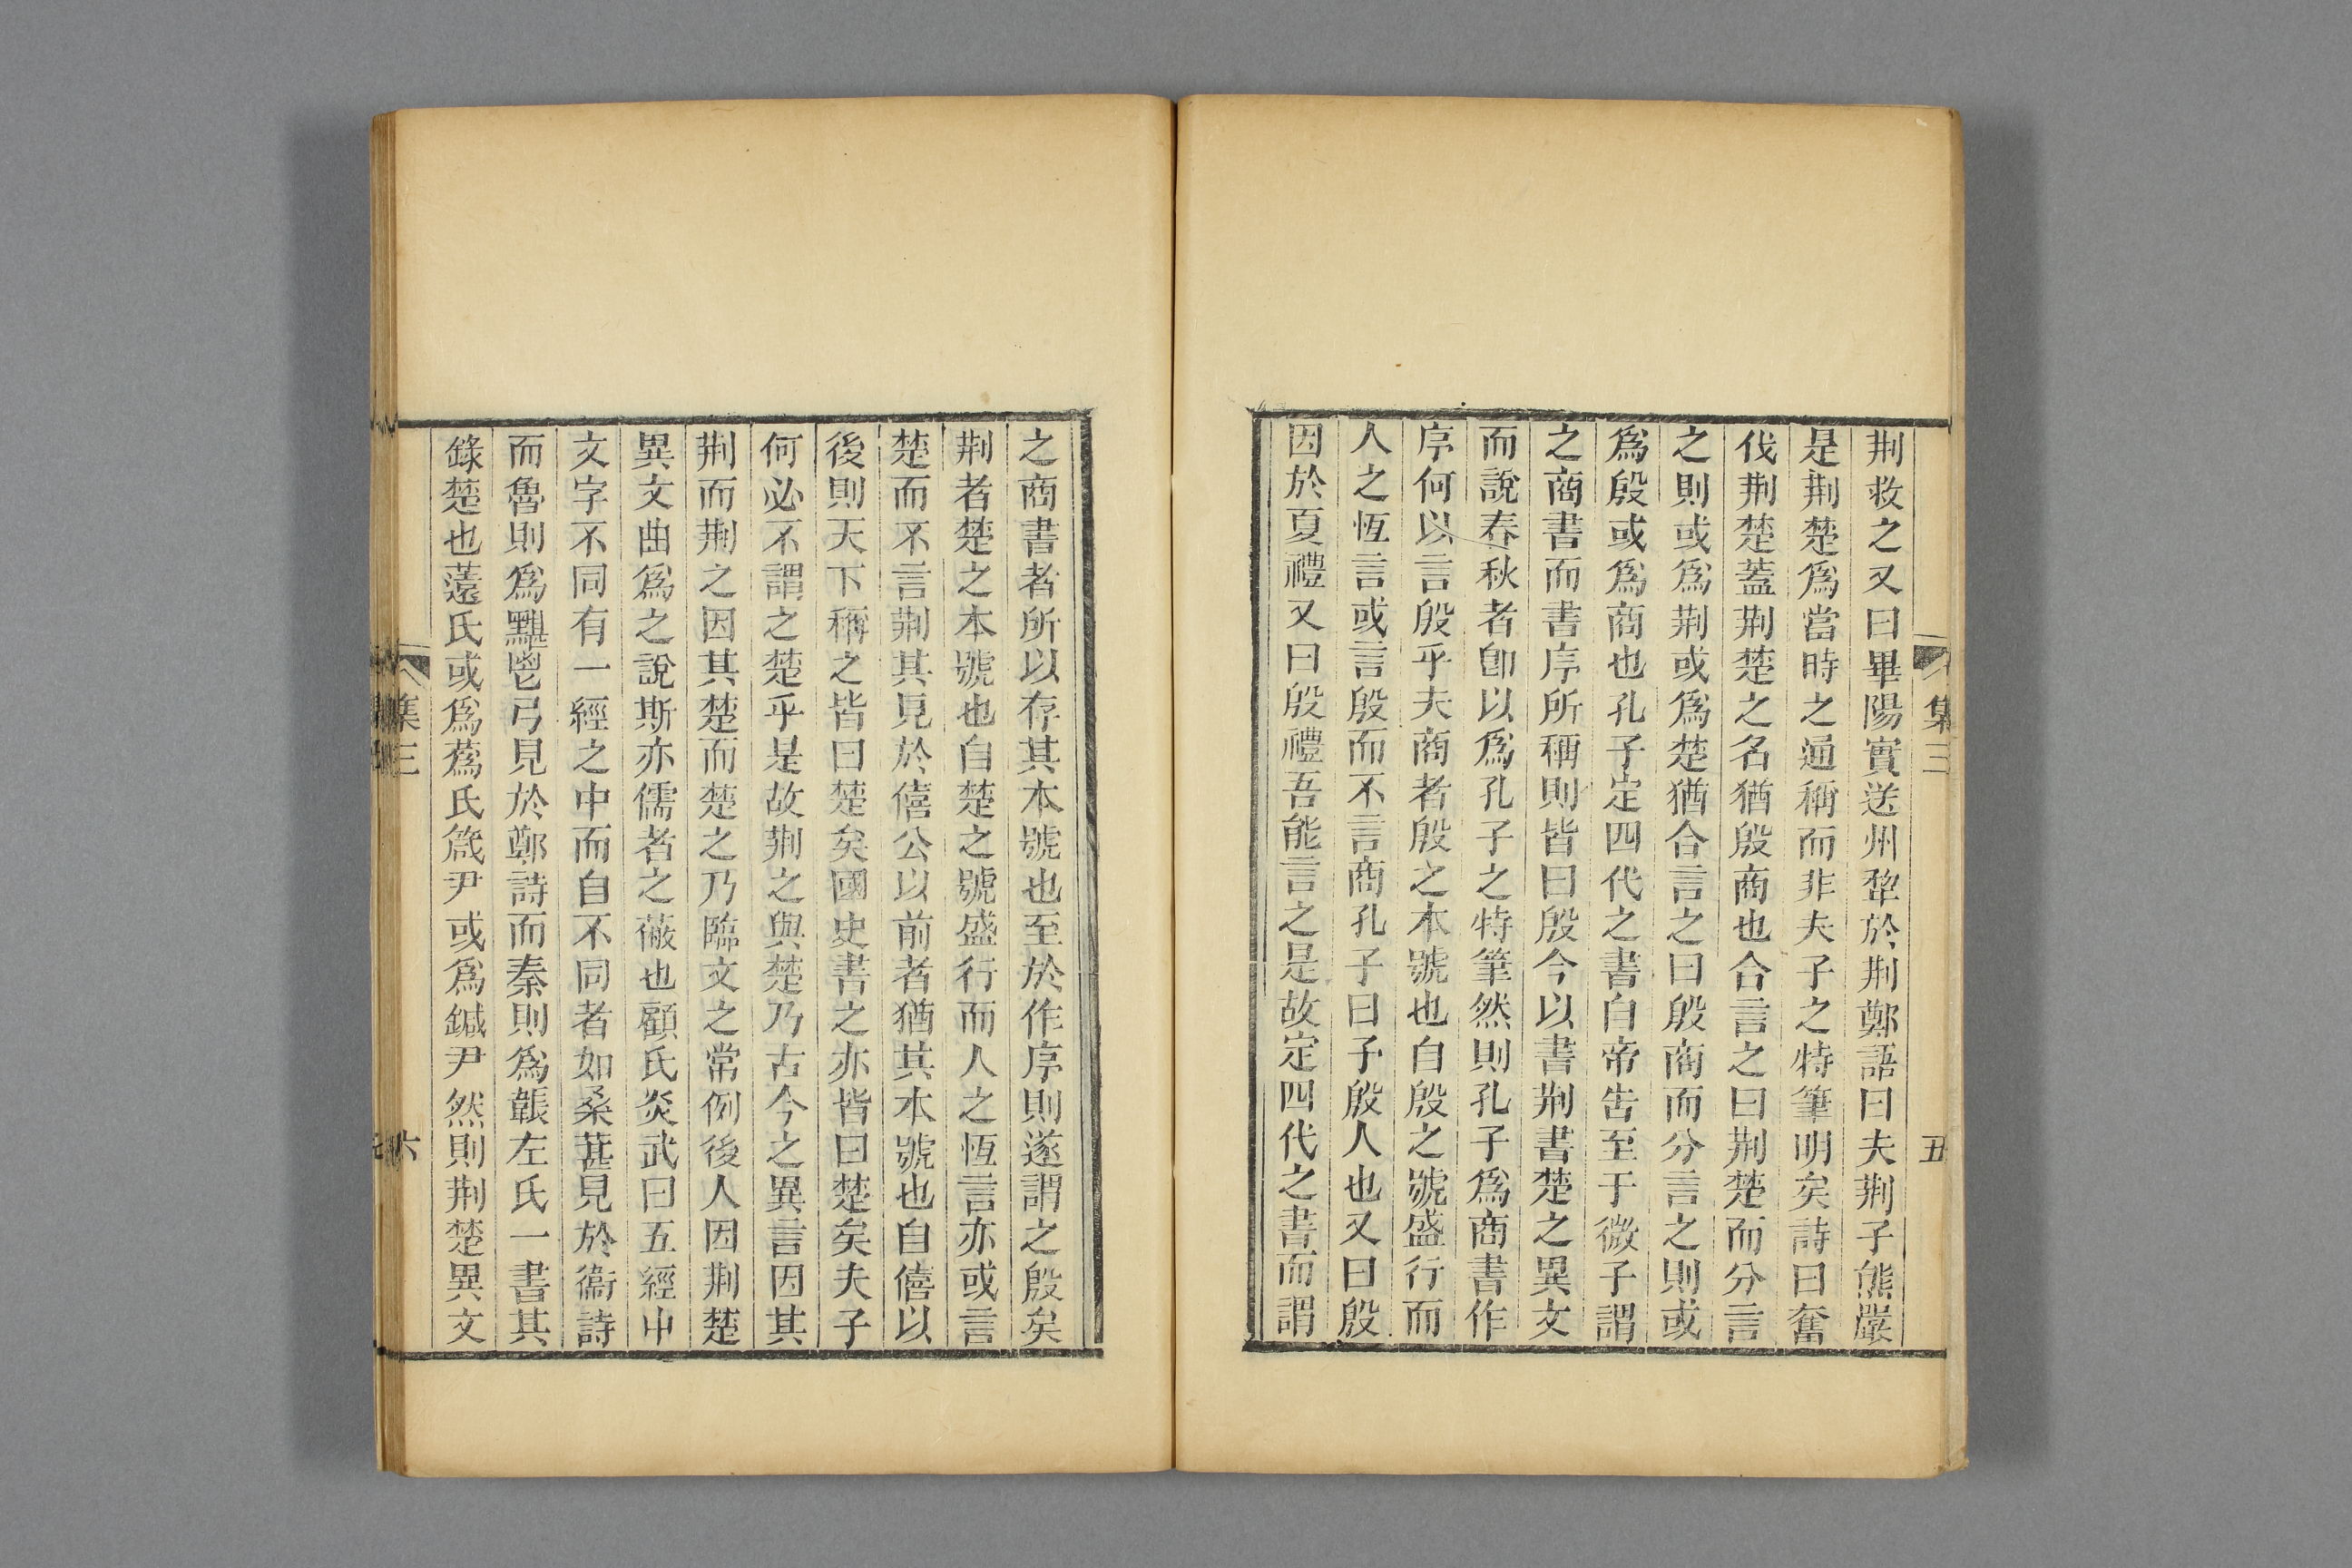 集三
五
荆救之又曰畢陽實送州犂於荆鄭語曰夫荆子熊嚴
是荆楚爲當時之通稱而非夫子之特筆明矣詩曰奮
伐荆楚蓋荆楚之名猶殷商也合言之曰荆楚而分言
之則或爲荆或爲楚猶合言之曰殷商而分言之則或
爲殷或爲商也孔子定四代之書自帝吿至于微子謂
之商書而書序所稱則皆曰殷今以書荆書楚之異文
而說春秋者卽以爲孔子之特筆然則孔子爲商書作
序何以言殷乎夫商者殷之本號也自殷之號盛行而
人之恆言或言殷而不言商孔子曰予殷人也又曰殷
因於夏禮又曰殷禮吾能言之是故定四代之書而謂
之商書者所以存其本號也至於作序則遂謂之殷矣
荆者楚之本號也自楚之號盛行而人之恆言亦或言
楚而不言荆其見於僖公以前者猶其本號也自僖以
後則天下稱之皆曰楚矣國史書之亦皆曰楚矣夫子
何必不謂之楚乎是故荆之與楚乃古今之異言因其
荆而荆之因其楚而楚之乃臨文之常例後人因荆楚
異文曲爲之說斯亦儒者之蔽也顧氏炎武曰五經中
文字不同有一經之中而自不同者如桑葚見於衞詩
而魯則爲黮鬯弓見於鄭詩而秦則爲韔左氏一書其
錄楚也薳氏或爲蒍氏箴尹或爲鍼尹然則荆楚異文
集三
六